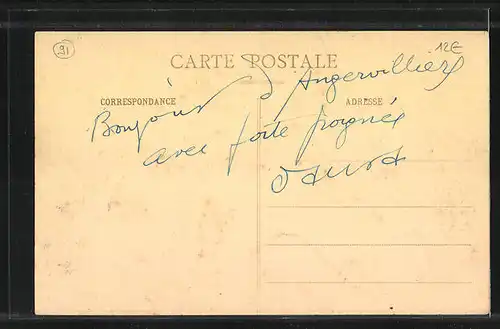 91
12E
CARTE POSTALE
CORRESPONDANCE
ADRESSE
Bonjour d'Angervilliers
avec forte poignée